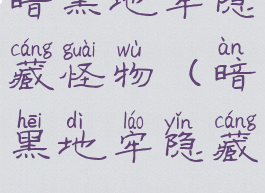 暗黑地牢隐
cáng guài wù àn
藏怪物（暗
hēi dì láo yǐn cáng
黑地牢隐藏